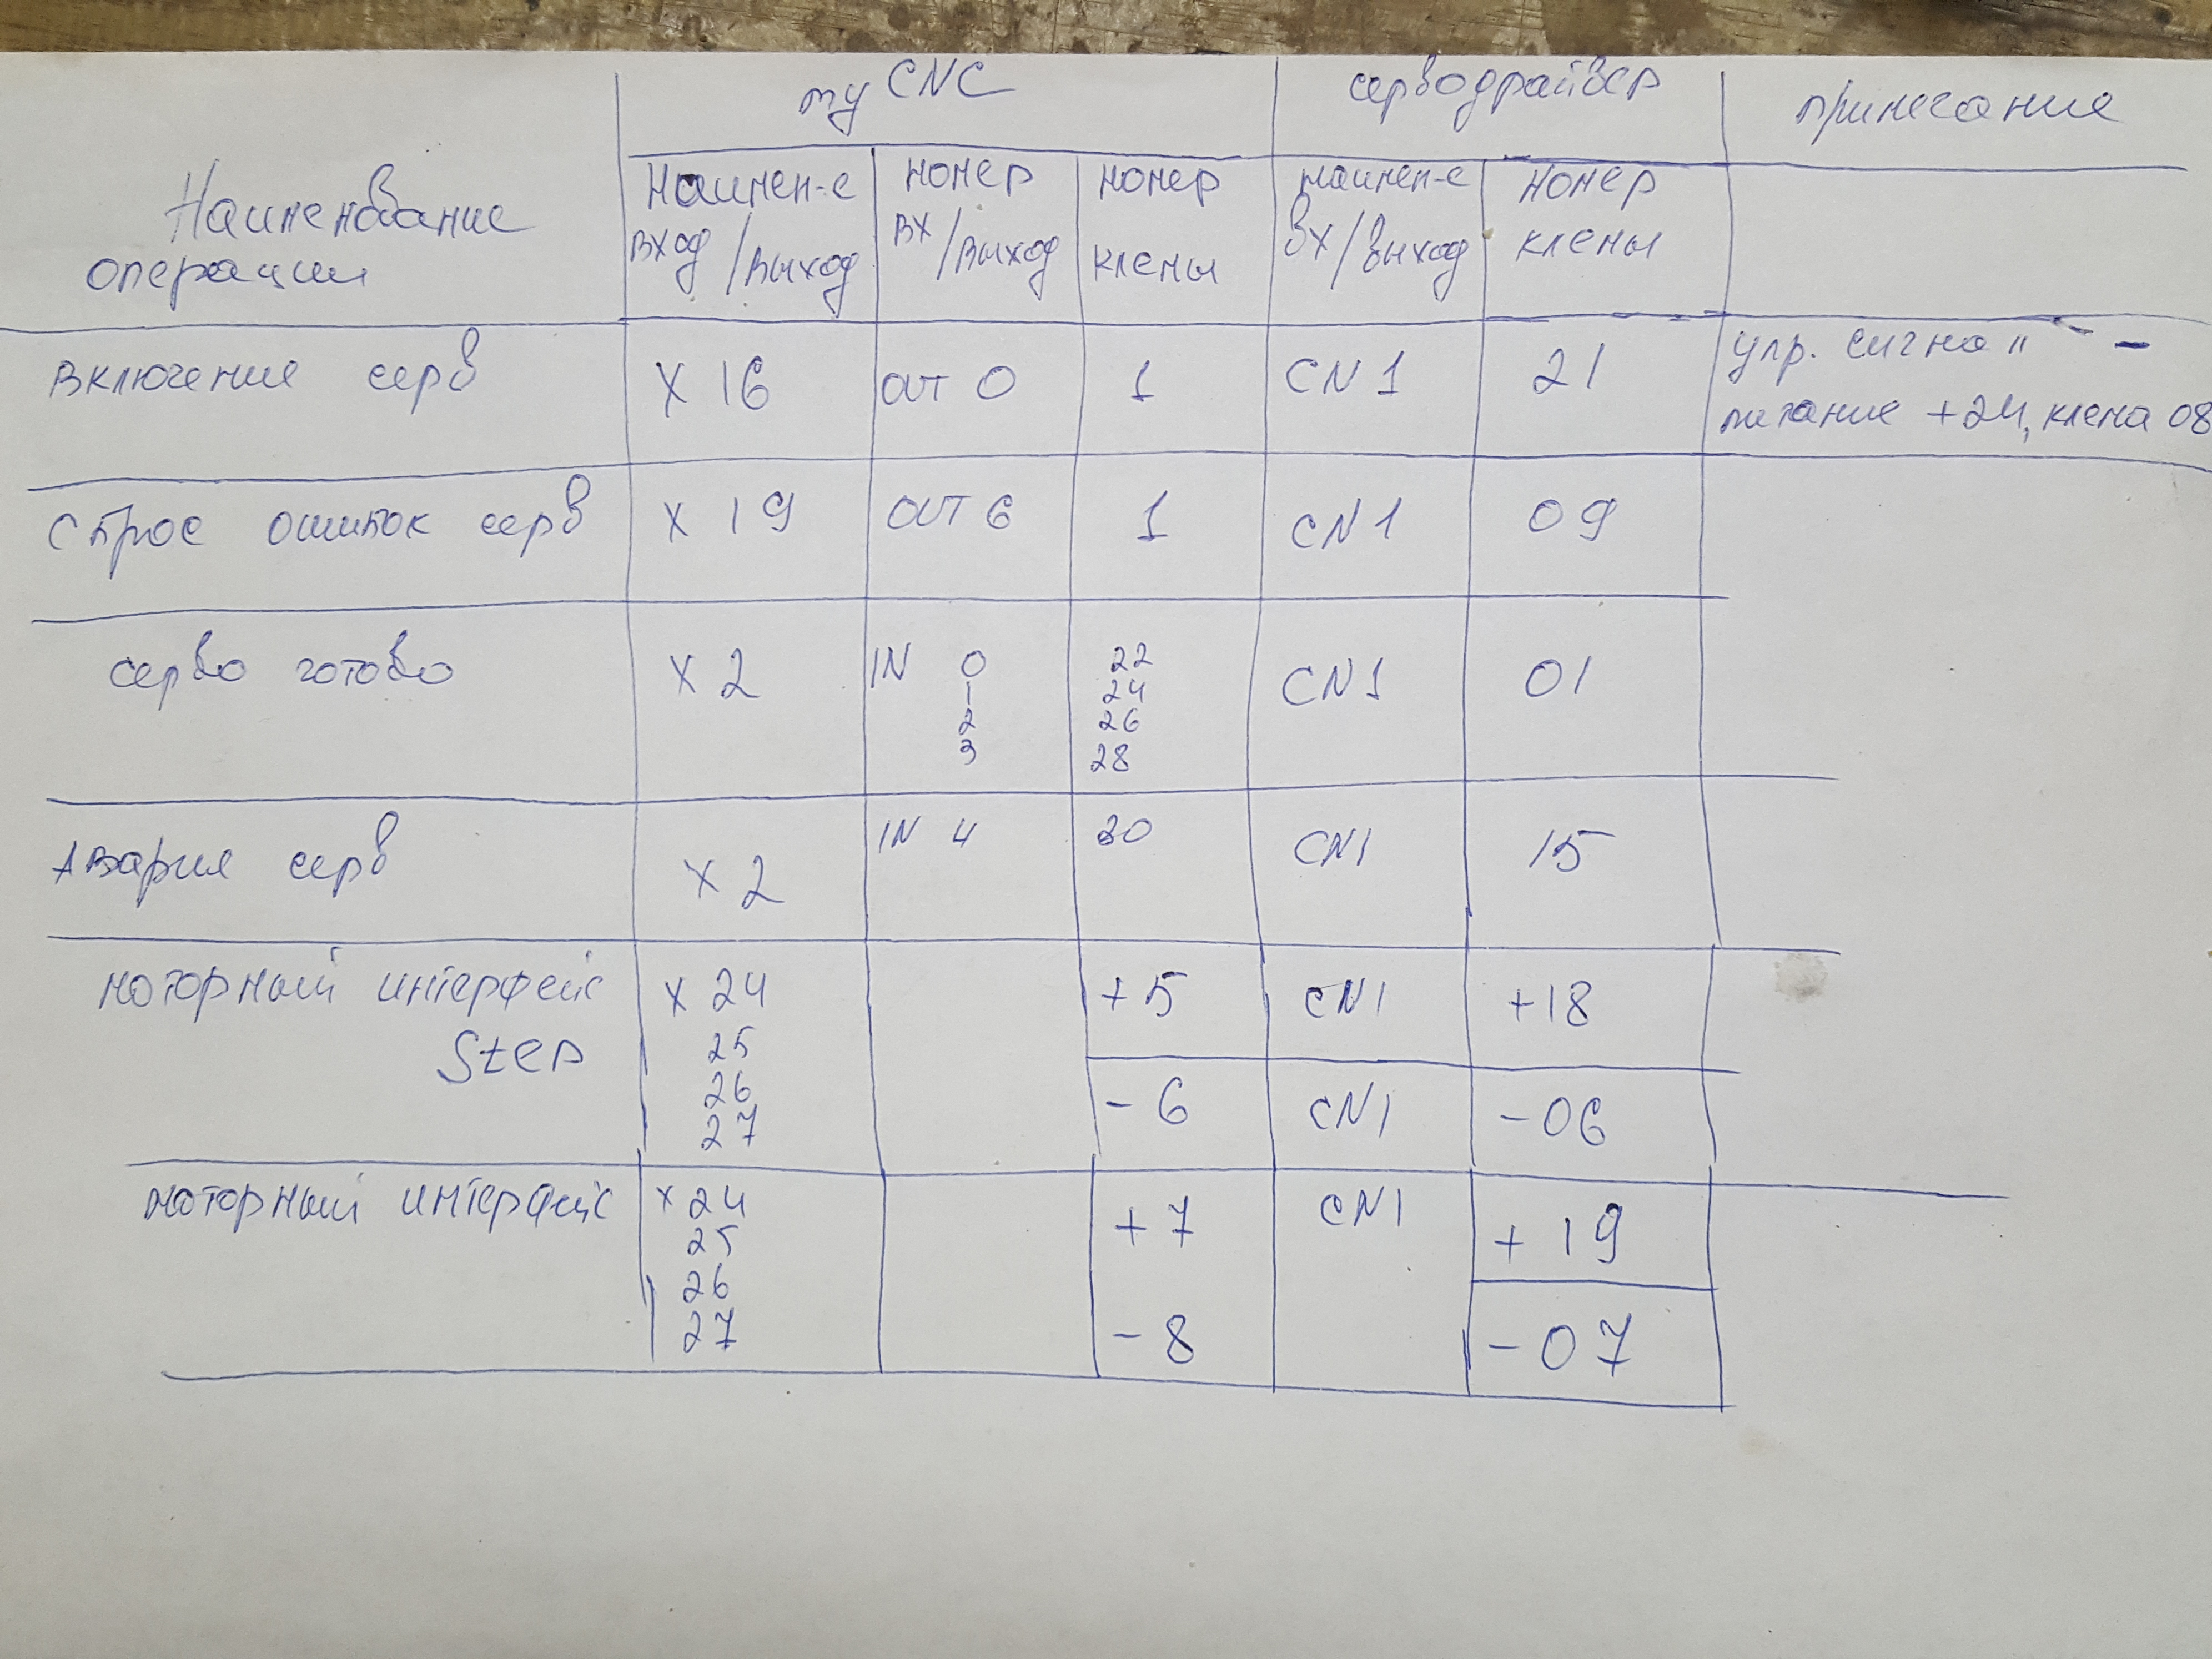 my CNC серводрайвер примечание
Наименование операции
Наимен-е вход/выход
номер вх/выход
номер клемы
наимен-е вх/выход
номер клемы
включение серв X 16 OUT 0 1 CN 1 21 упр. сигнал "-"
питание +24, клема 08
сброс ошибок серв X 19 OUT 6 1 CN 1 09
серво готово X 2 IN 0 22 CN 1 01
1 24
2 26
3 28
Авария серв X 2 IN 4 30 CN1 15
моторный интерфейс X 24 +5 CN1 +18
Step 25
26 -6 CN1 -06
27
моторный интерфейс X 24 +7 CN1 +19
25
26
27 -8 -07